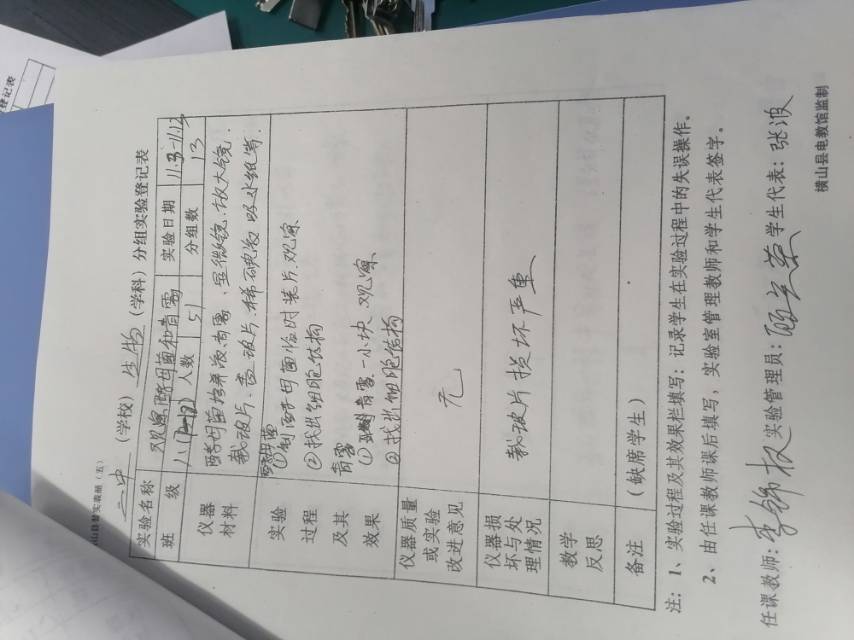 山县普实表册（五）
二中（学校）生物（学科）分组实验登记表
实验名称 观察酵母菌和青霉 实验日期 11.8-11.12
班级 人数 51 分组数 13
仪器材料 酵母菌培养液、青霉、显微镜、放大镜、
载玻片、盖玻片、稀碘液、吸水纸等.
实验过程及其效果 酵母菌
①制酵母菌临时装片.观察
②找出细胞结构
青霉
①青霉一小块 观察
②找出细胞结构
仪器质量或实验改进意见 无
仪器损坏与处理情况 载玻片损坏严重
教学反思
备注 （缺席学生）
注：1、实验过程及其效果栏填写：记录学生在实验过程中的失误操作。
2、由任课教师课后填写，实验室管理教师和学生代表签字。
任课教师：李锦权 实验管理员： 学生代表：张波
横山县电教馆监制
登记表